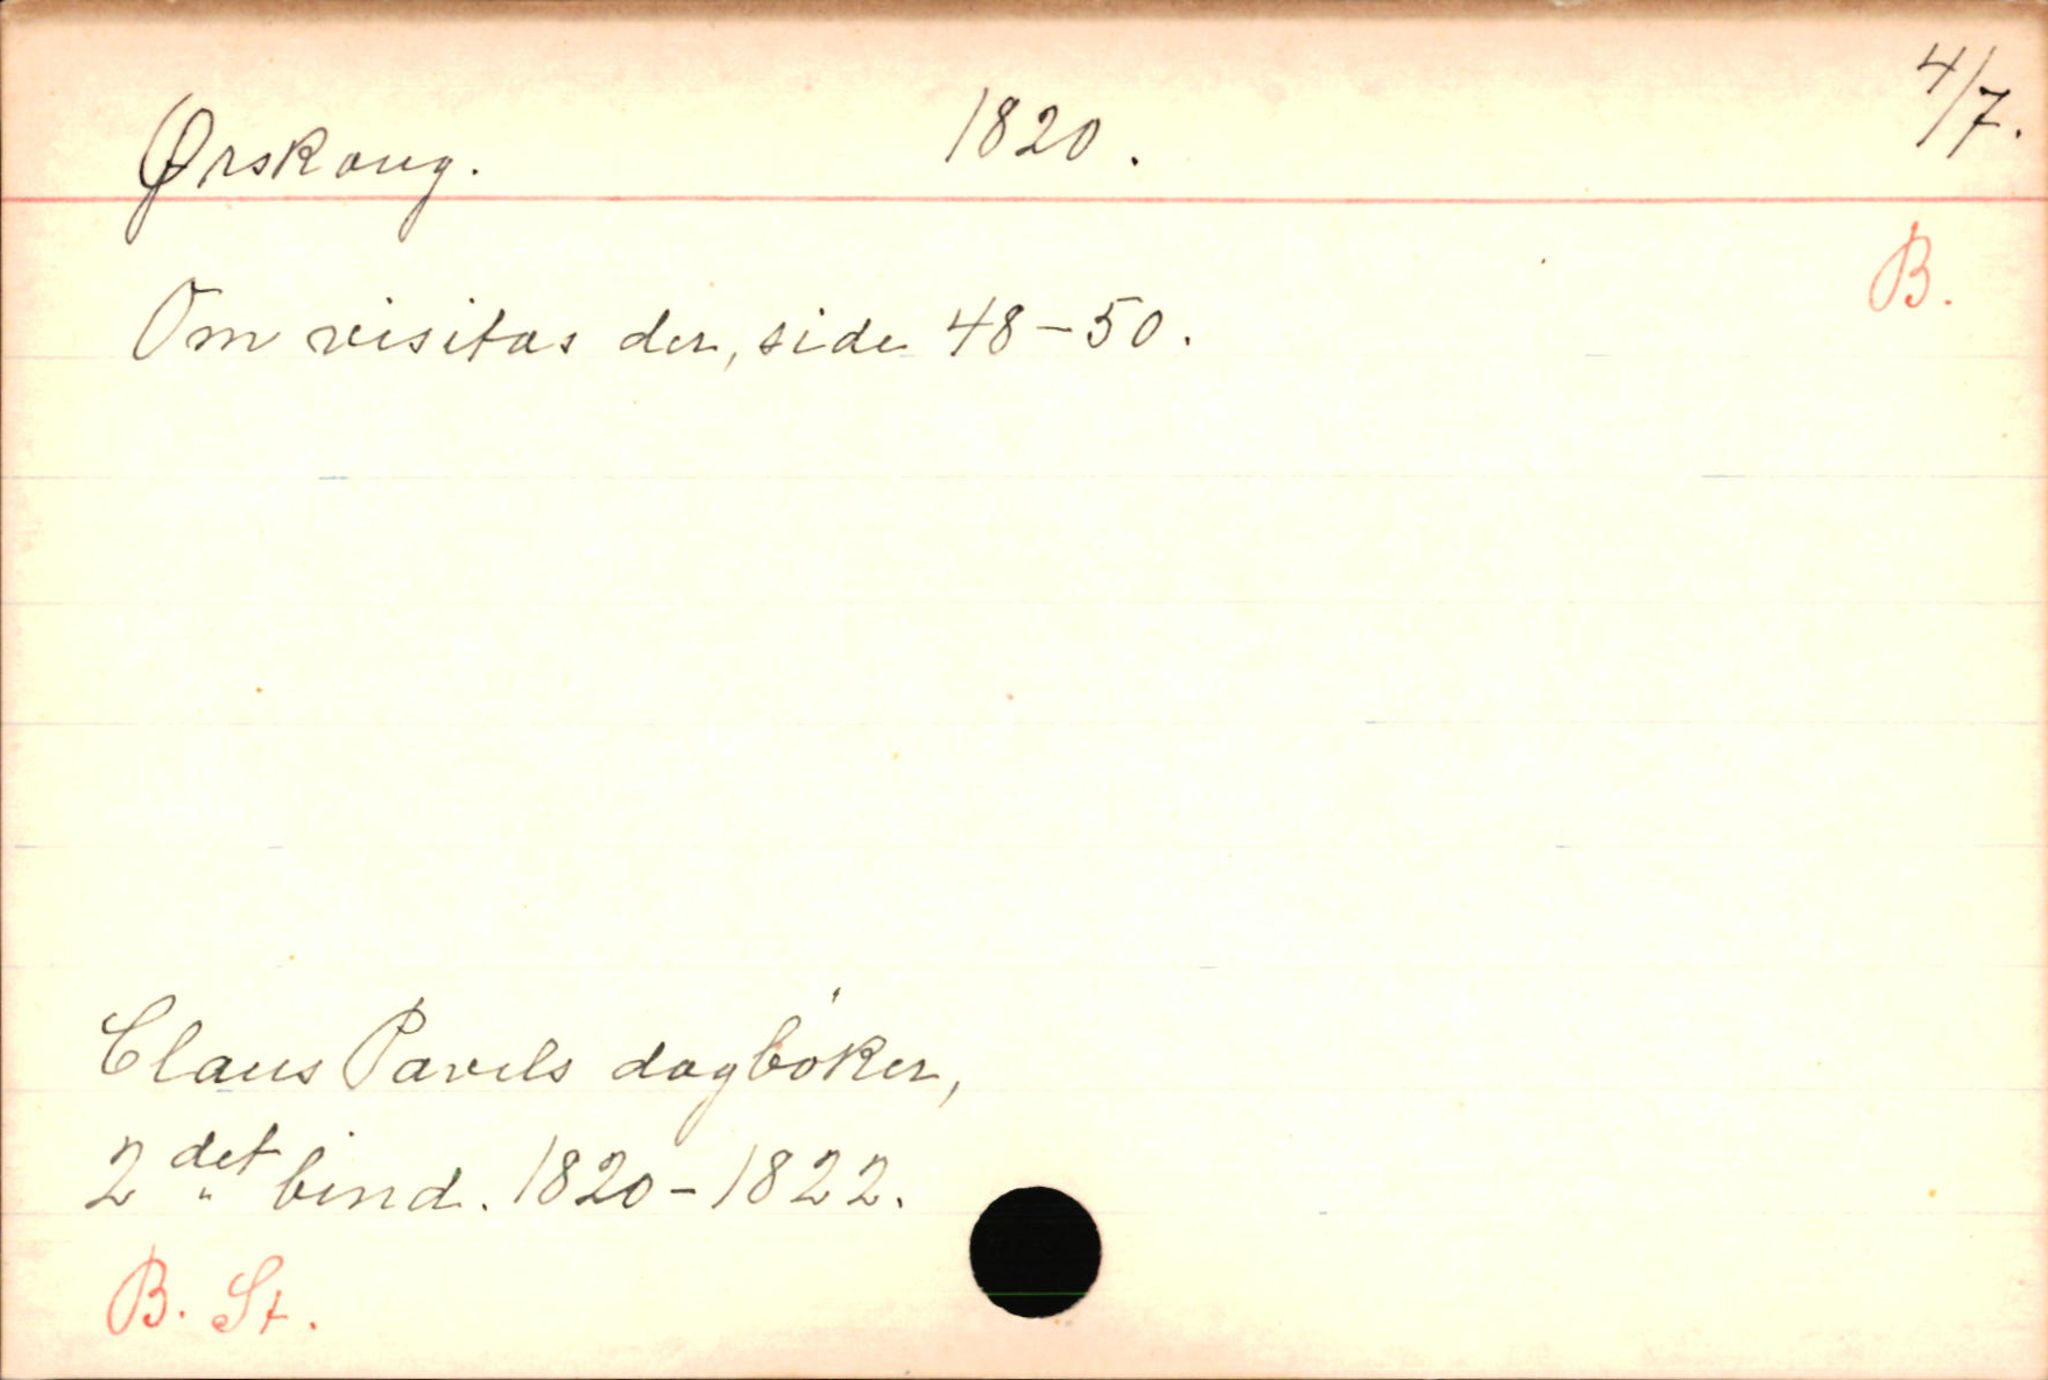 Ørskoug. 1820. 4/7.
B.
Om visitas der, side 48-50.
Claus Pavels dagbøker,
2det bind. 1820-1822.
B. St.